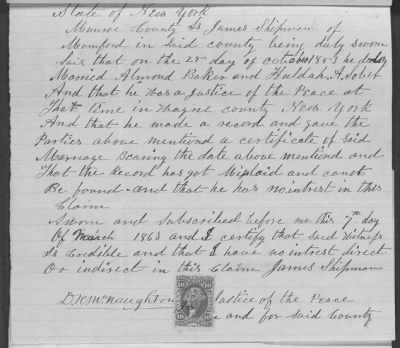 State of New York
Monroe County Ss James Shipman of
Mumford in said county being duly sworn
Says that on the 25 day of October 1853 he duly
Married Almond Baker and Huldah A
And that he was a Justice of the Peace at
That time in Wayne county New York
And that he made a record and gave the
Parties above mentiond a certificate of said
Marriage Bearing the date above mentiond and
That the Record has got Mislaid and canot
Be found and that he has no intrest in this
Claim
Sworn and Subscribed before me this 7th day
Of March 1863 and I certify that said witness
Is Credible and that I have no intrest direct
Or indirect in this Claim James Shipman
D. McNaughton Justice of the Peace
and for said County